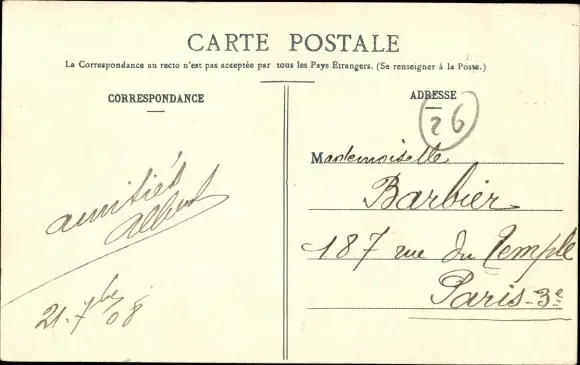 CARTE POSTALE
La Correspondance au recto n'est pas acceptée par tous les Pays Étrangers. (Se renseigner à la Poste.)
CORRESPONDANCE
amitiés
Albert
21-7bre 08
ADRESSE
26
Mademoiselle
Barbier
187 rue du Temple
Paris-3e